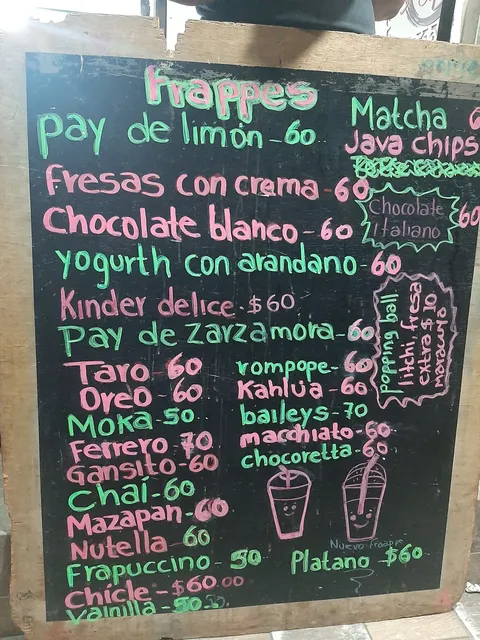 frappes
Pay de limón - 60
Fresas con crema - 60
Chocolate blanco - 60
yogurth con arandano - 60
Kinder delice - $60
Pay de Zarzamora - 60
Taro 60
Oreo - 60
Moka - 50
Ferrero 70
Gansito - 60
Chai - 60
Mazapan - 60
Nutella - 60
Frapuccino - 50
Chicle - $60.00
Vainilla - 50
rompope - 60
Kahlúa - 60
baileys - 70
macchiato - 60
chocoretta - 60
Nuevo fraapp
Platano - $60
Matcha 6
Java chips
Chocolate
Italiano 60
Popping ball
litchi, fresa
extra $ 10
maracuya